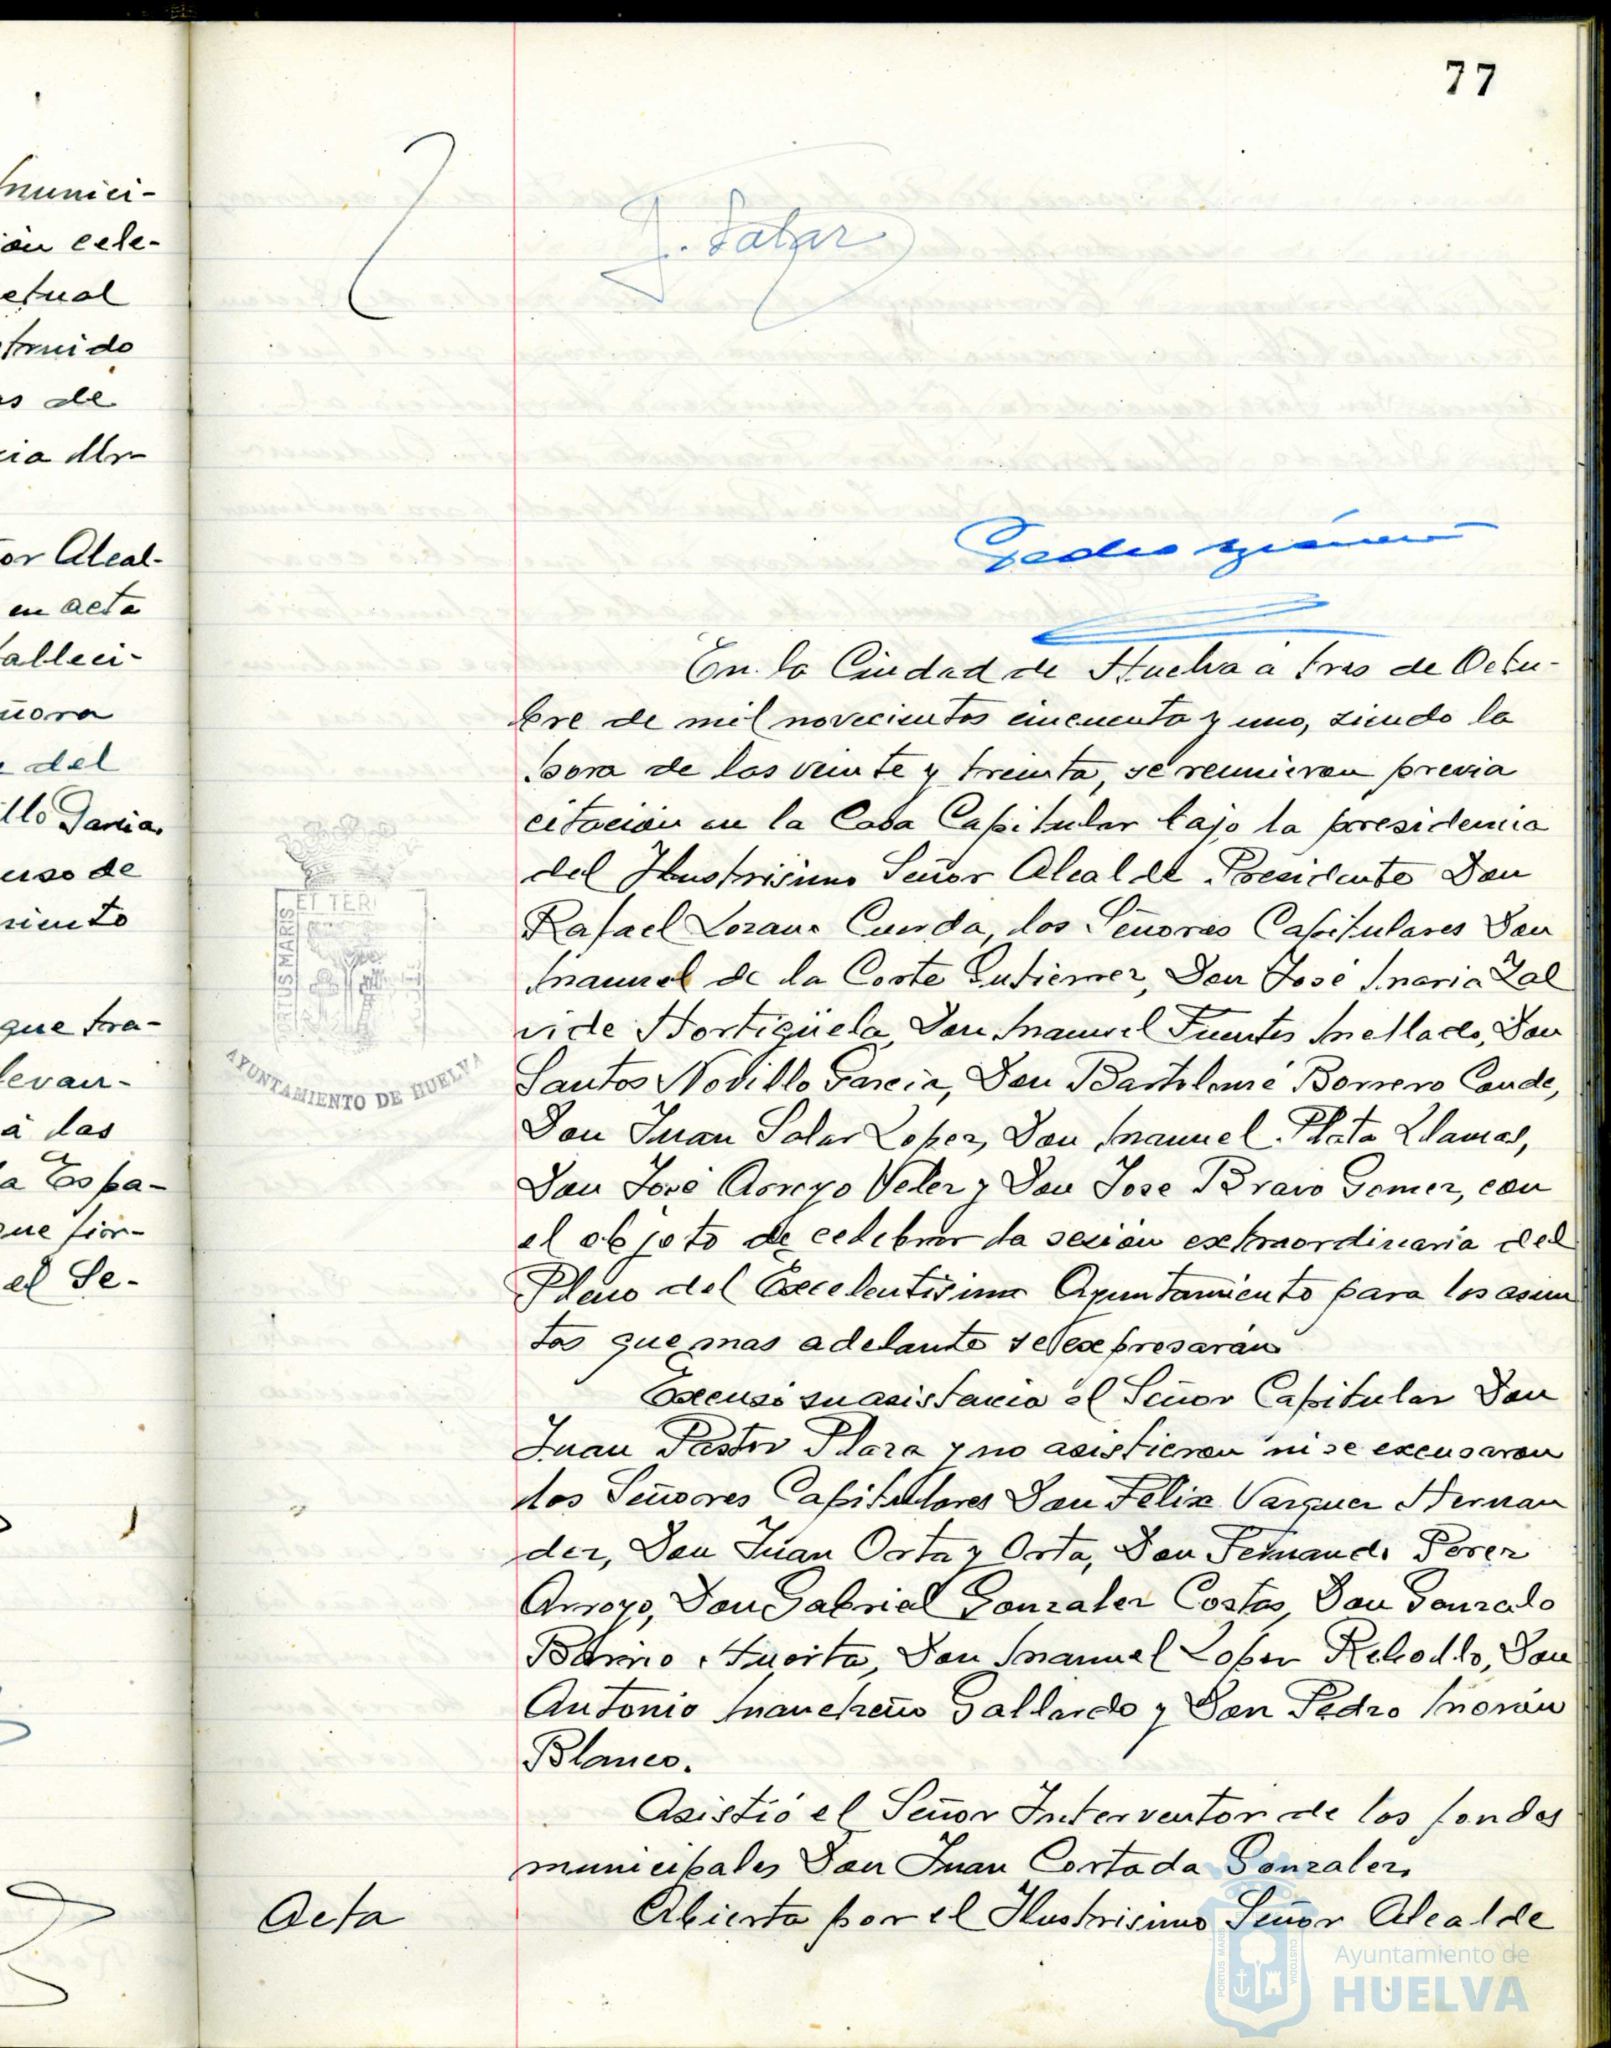 77
munici-
ión cele-
ctual
truido
s de
cia Mr-
or Alcal-
en acta
falleci-
ñora
del
illo Garcia,
uso de
miento
que tra-
levan-
á las
a Espa-
que fir-
el Se-
J. Salar
En la Ciudad de Huelva a tres de Octu-
bre de mil novecientos cincuenta y uno, siendo la
hora de las veinte y treinta, se reunieron previa
citación en la Casa Capitular bajo la presidencia
del Ilustrisimo Señor Alcalde Presidente Don
Rafael Lozano Cuerda, los Señores Capitulares Don
Manuel de la Corte Gutierrez, Don José Maria Zal
vide Hortigüela, Don Manuel Fuentes Mellado, Don
Santos Novillo Garcia, Don Bartolomé Borrero Conde,
Don Juan Salar Lopez, Don Manuel Plata Llamas,
Don José Arroyo Velez y Don Jose Bravo Gomez, con
el objeto de celebrar la sesión extraordinaria del
Pleno del Excelentisimo Ayuntamiento para los asun
tos que mas adelante se expresarán
Excusó su asistencia el Señor Capitular Don
Juan Pastor Plaza y no asistieron ni se excusaron
los Señores Capitulares Don Felix Vazquez Hernan
dez, Don Juan Orta y Orta, Don Fernando Perez
Arroyo, Don Gabriel Gonzalez Costas, Don Gonzalo
Barrio Huerta, Don Manuel Lopez Rebollo, Don
Antonio Mancheño Gallardo y Don Pedro Morón
Blanco.
Asistió el Señor Interventor de los fondos
municipales Don Juan Cortada Gonzalez,
Acta
Abierta por el Ilustrisimo Señor Alcalde
PORTUS MARIS
ET TERR
AYUNTAMIENTO DE HUELVA
PORTUS MARIS
CUSTODIA
Ayuntamiento de
HUELVA